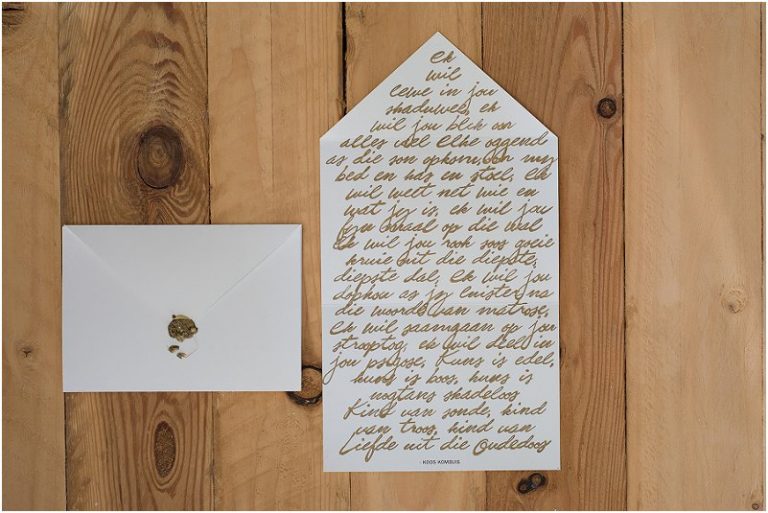 Ek
wil
lewe in jou
skaduwee, ek
wil jou blik oor
alles voel Elke oggend
as die son opkom, oor my
bed en kas en stoel, Ek
wil weet net wie en
wat jy is, Ek wil jou
fyn koraal op die wal
Ek wil jou rook soos goeie
kruie uit die diepste,
diepste dal, Ek wil jou
dophou as jy luister na
die woorde van matrose,
Ek wil saamgaan op jou
strooptog, ek wil deel in
jou psigose, Kuns is edel,
kuns is boos, kuns is
nogtans skadeloos
Kind van sonde, kind
van troos, kind van
Liefde uit die Oudedoos
KOOS KOMBUIS